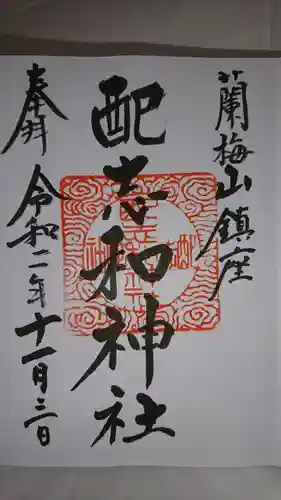 蘭梅山鎮座
配志和神社
奉拝
令和二年十一月三日